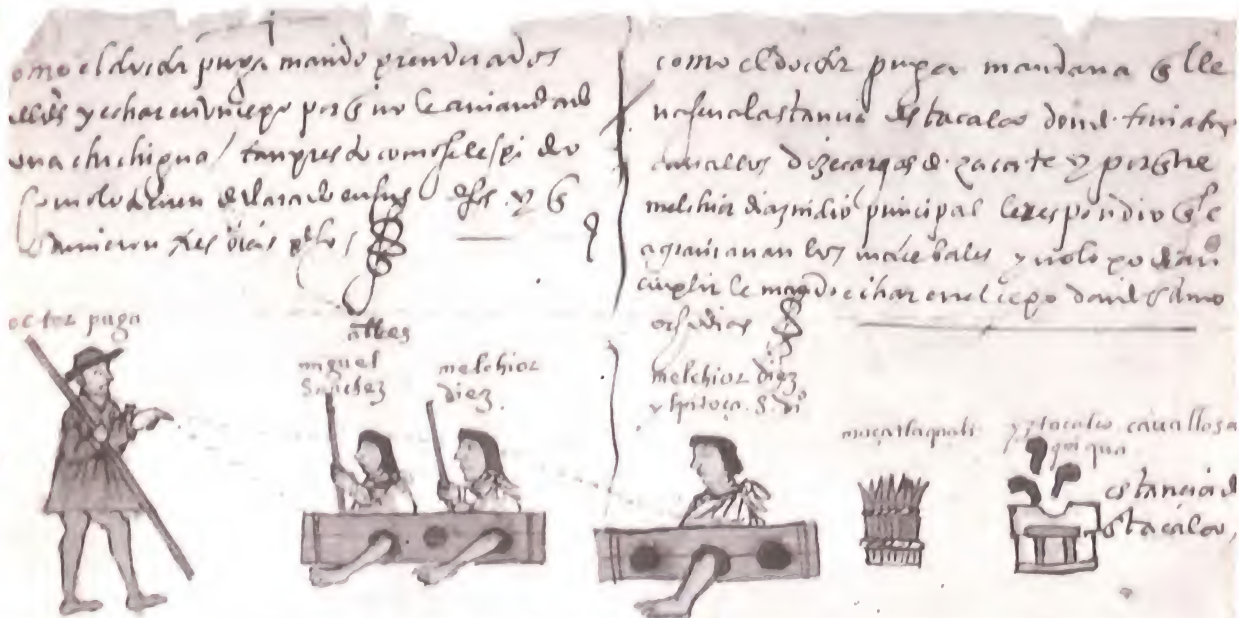 omo el doctor puga mando prender a dos
alldes y echar en un çepo porq no le aviandado
una chichigua / tan presto como se les pidio
y q
tres dias presos
como el doctor puga mandava q lle
vasen a la stancia estacalco donde tenia los
cavallos diez cargas de çacate y porque
melchior diaz indio principal le respondio q se
agraviavan los maçehuales y no lo podian
cumplir le mando echar en el cepo donde estuvo
ocho dias
octor puga
alldes
miguel
Sanchez
melchior
diez
melchior diez
maçatlaquali
yztacalco cavallos
estancia d
estacalco